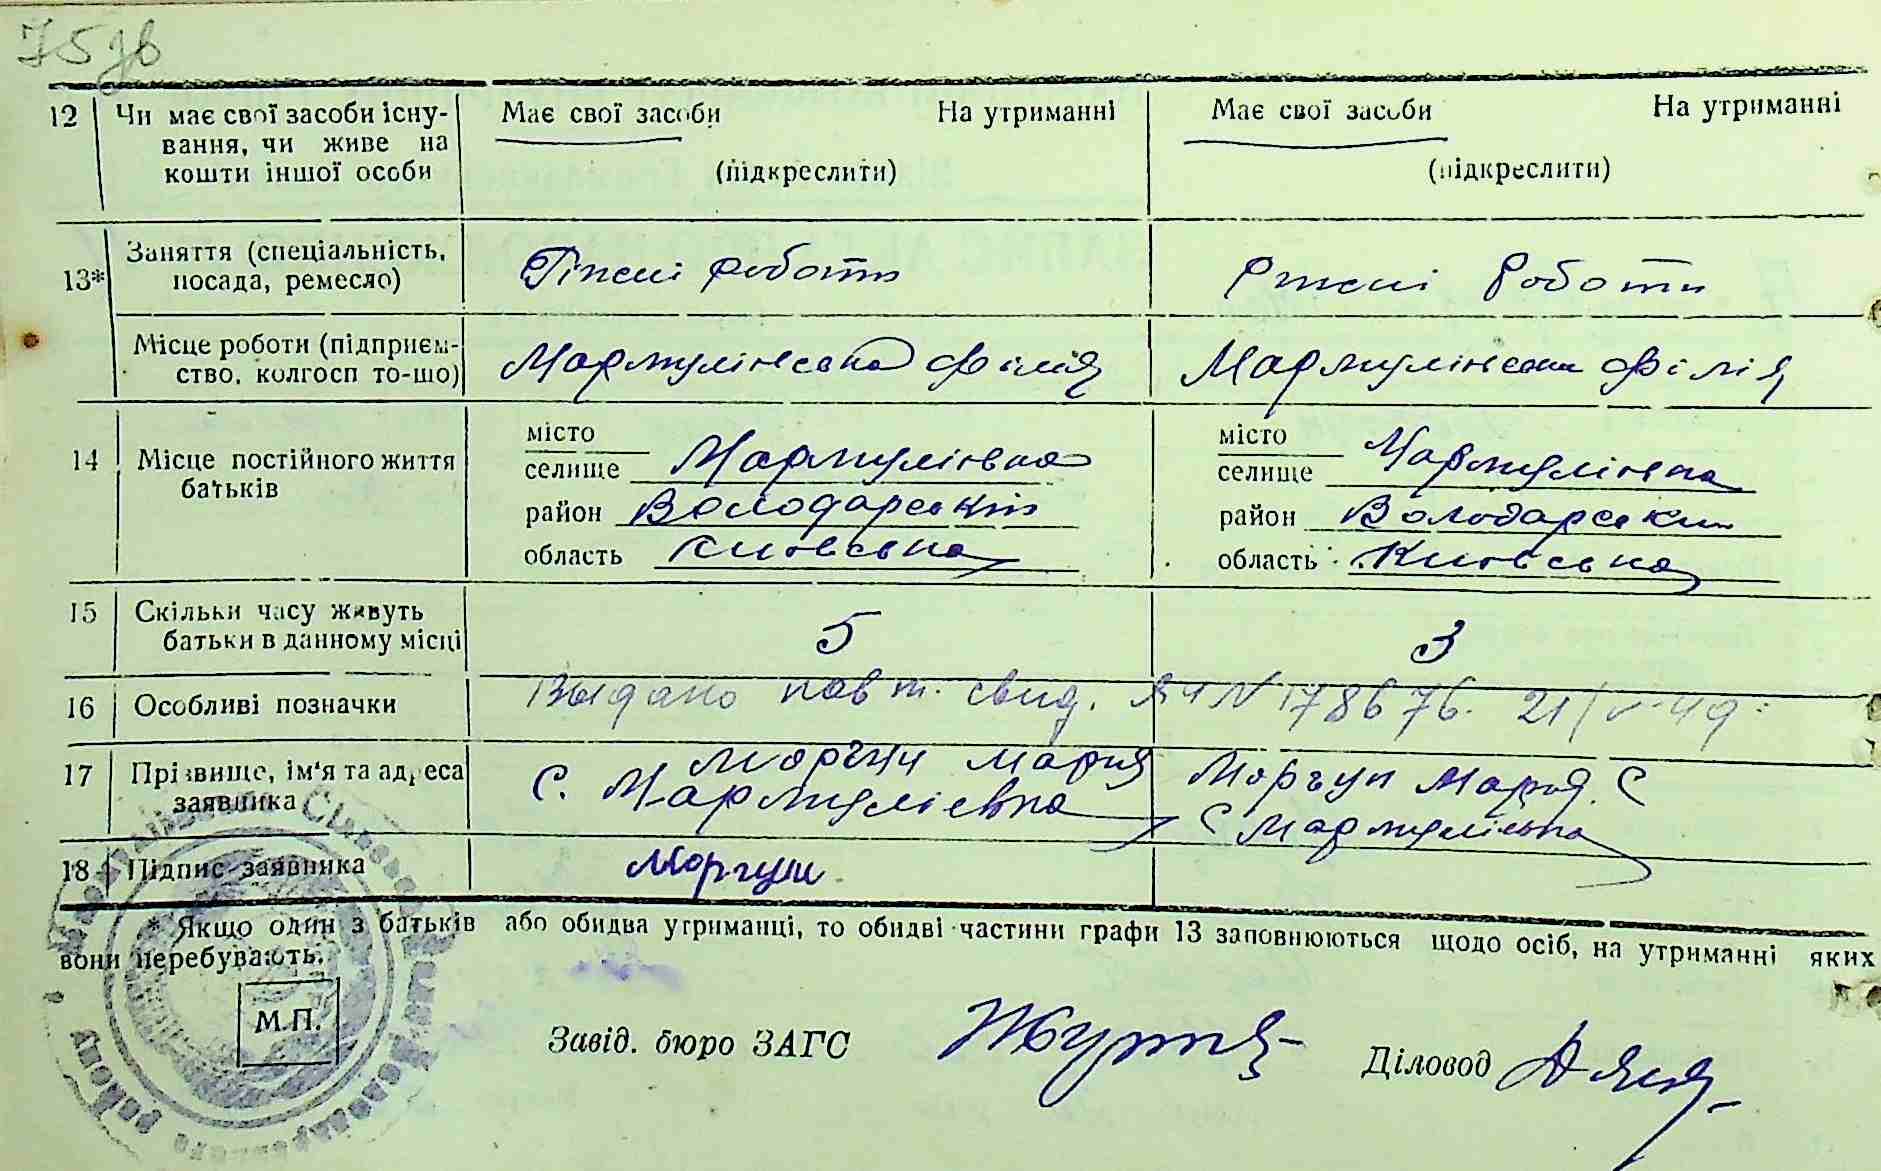 75 зв
12 Чи має свої засоби існу- Має свої засоби На утриманні Має свої засоби На утриманні
вання, чи живе на
кошти іншої особи (підкреслити) (підкреслити)
13* Заняття (спеціальність, посада, ремесло) роботи роботи
Місце роботи (підприєм- Мармулінська філія Мармулінська філія
ство, колгосп то-що)
14 Місце постійного життя батьків
місто місто
селище Мармуліевка селище Мармулівка
район Володарський район Володарський
область Киевська область Киевська
15 Скільки часу живуть 5 3
батьки в данному місці
16 Особливі позначки Выдано повт. свид. ЯЧ N 178676. 21/V-49
17 Прізвище, ім'я та адреса Моргун Мария Моргун Мария С
заявника С. Мармуліевка С Мармулівка
18 Підпис заявника Моргун
* Якщо один з батьків або обидва утриманці, то обидві частини графи 13 заповнюються щодо осіб, на утриманні яких
вони перебувають.
М.П.
Завід. бюро ЗАГС Діловод